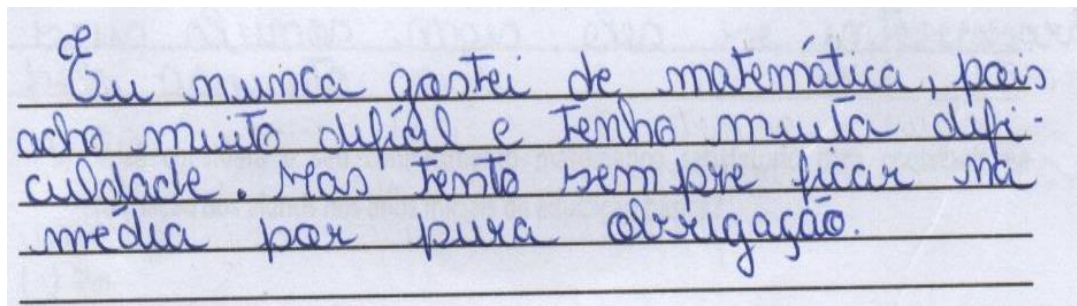 Eu nunca gostei de matemática, pois
acho muito difícil e tenho muita difi-
culdade. Mas tento sempre ficar na
média por pura obrigação.